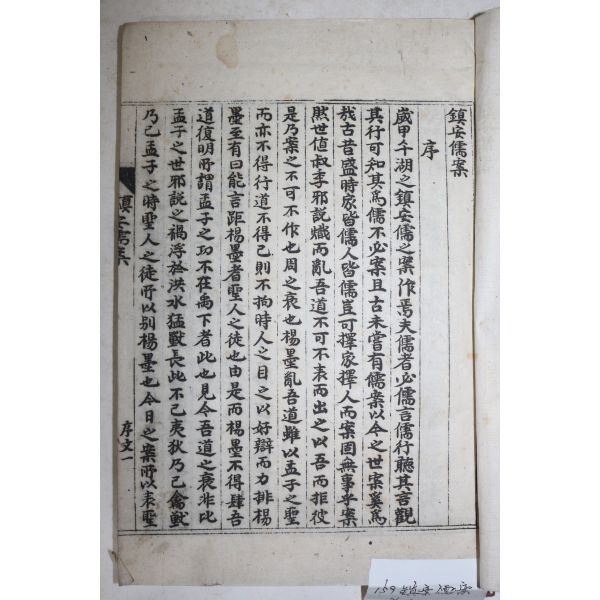 鎮安儒案
序
歲甲午湖之鎮安儒之案作焉夫儒者必儒言儒行聽其言觀
其行可知其爲儒不必案且古未嘗有儒案以今之世案奚爲
哉古昔盛時家皆儒人皆儒豈可擇家擇人而案固無事乎案
然世値叔季邪說熾而亂吾道不可不表而出之以吾而拒彼
是乃案之不可不作也周之衰也楊墨亂吾道雖以孟子之聖
而亦不得行道不得已則不拘時人之目之以好辯而力排楊
墨至有曰能言距楊墨者聖人之徒也由是而楊墨不得肆吾
道復明所謂孟子之功不在禹下者此也見今吾道之衰非比
孟子之世邪說之禍浮於洪水猛獸長此不已夷狄乃已禽獸
乃已孟子之時聖人之徒所以別楊墨也今日之案所以表聖
鎮安儒案
序文一
159 鎮安儒案